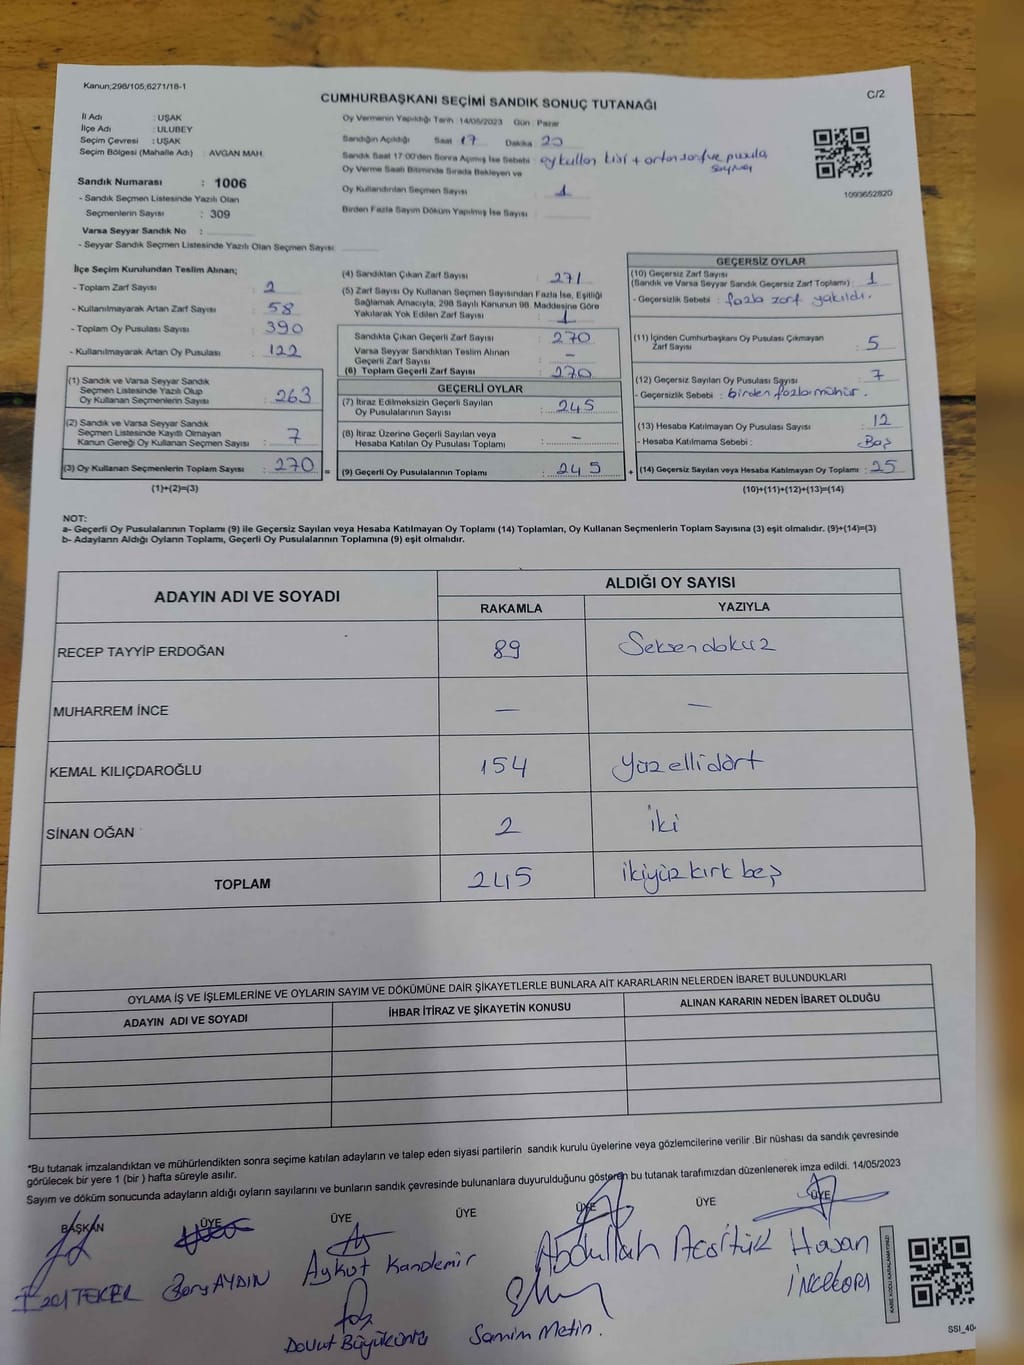 Kanun;298/105;6271/18-1
C/2
CUMHURBAŞKANI SEÇİMİ SANDIK SONUÇ TUTANAĞI
İl Adı : UŞAK
İlçe Adı : ULUBEY
Seçim Çevresi : UŞAK
Seçim Bölgesi (Mahalle Adı) : AVGAN MAH.
Sandık Numarası : 1006
- Sandık Seçmen Listesinde Yazılı Olan
Seçmenlerin Sayısı : 309
Varsa Seyyar Sandık No :
- Seyyar Sandık Seçmen Listesinde Yazılı Olan Seçmen Sayısı
Oy Vermenin Yapıldığı Tarih :14/05/2023 Gün : Pazar
Sandığın Açıldığı Saat 17 Dakika 20
Sandık Saat 17:00'den Sonra Açılmış İse Sebebi : oy kullan kisi + artan zarf ve pusula
sayımı
Oy Verme Saati Bitiminde Sırada Bekleyen ve
Oy Kullandırılan Seçmen Sayısı : 1
Birden Fazla Sayım Döküm Yapılmış İse Sayısı :
1093652820
İlçe Seçim Kurulundan Teslim Alınan;
- Toplam Zarf Sayısı : 2
- Kullanılmayarak Artan Zarf Sayısı : 58
- Toplam Oy Pusulası Sayısı : 390
- Kullanılmayarak Artan Oy Pusulası : 122
(1) Sandık ve Varsa Seyyar Sandık
Seçmen Listesinde Yazılı Olup
Oy Kullanan Seçmenlerin Sayısı : 263
(2) Sandık ve Varsa Seyyar Sandık
Seçmen Listesinde Kayıtlı Olmayan
Kanun Gereği Oy Kullanan Seçmen Sayısı : 7
(3) Oy Kullanan Seçmenlerin Toplam Sayısı : 270
(1)+(2)=(3)
(4) Sandıktan Çıkan Zarf Sayısı : 271
(5) Zarf Sayısı Oy Kullanan Seçmen Sayısından Fazla İse, Eşitliği
Sağlamak Amacıyla, 298 Sayılı Kanunun 98. Maddesine Göre
Yakılarak Yok Edilen Zarf Sayısı : 1
Sandıkta Çıkan Geçerli Zarf Sayısı : 270
Varsa Seyyar Sandıktan Teslim Alınan
Geçerli Zarf Sayısı : -
(6) Toplam Geçerli Zarf Sayısı : 270
GEÇERLİ OYLAR
(7) İtiraz Edilmeksizin Geçerli Sayılan
Oy Pusulalarının Sayısı : 245
(8) İtiraz Üzerine Geçerli Sayılan veya
Hesaba Katılan Oy Pusulası Toplamı : -
= (9) Geçerli Oy Pusulalarının Toplamı : 245
GEÇERSİZ OYLAR
(10) Geçersiz Zarf Sayısı
(Sandık ve Varsa Seyyar Sandık Geçersiz Zarf Toplamı) : 1
- Geçersizlik Sebebi : fazla zarf yakıldı.
(11) İçinden Cumhurbaşkanı Oy Pusulası Çıkmayan
Zarf Sayısı : 5
(12) Geçersiz Sayılan Oy Pusulası Sayısı : 7
- Geçersizlik Sebebi : birden fazla mühür.
(13) Hesaba Katılmayan Oy Pusulası Sayısı : 12
- Hesaba Katılmama Sebebi : Boş
+ (14) Geçersiz Sayılan veya Hesaba Katılmayan Oy Toplamı : 25
(10)+(11)+(12)+(13)=(14)
NOT:
a- Geçerli Oy Pusulalarının Toplamı (9) ile Geçersiz Sayılan veya Hesaba Katılmayan Oy Toplamı (14) Toplamları, Oy Kullanan Seçmenlerin Toplam Sayısına (3) eşit olmalıdır. (9)+(14)=(3)
b- Adayların Aldığı Oyların Toplamı, Geçerli Oy Pusulalarının Toplamına (9) eşit olmalıdır.
ADAYIN ADI VE SOYADI
ALDIĞI OY SAYISI
RAKAMLA YAZIYLA
RECEP TAYYİP ERDOĞAN 89 Seksendokuz
MUHARREM İNCE — —
KEMAL KILIÇDAROĞLU 154 yüzellidört
SİNAN OĞAN 2 iki
TOPLAM 245 ikiyüzkırk beş
OYLAMA İŞ VE İŞLEMLERİNE VE OYLARIN SAYIM VE DÖKÜMÜNE DAİR ŞİKAYETLERLE BUNLARA AİT KARARLARIN NELERDEN İBARET BULUNDUKLARI
ADAYIN ADI VE SOYADI İHBAR İTİRAZ VE ŞİKAYETİN KONUSU ALINAN KARARIN NEDEN İBARET OLDUĞU
*Bu tutanak imzalandıktan ve mühürlendikten sonra seçime katılan adayların ve talep eden siyasi partilerin sandık kurulu üyelerine veya gözlemcilerine verilir .Bir nüshası da sandık çevresinde
görülecek bir yere 1 (bir ) hafta süreyle asılır.
Sayım ve döküm sonucunda adayların aldığı oyların sayılarını ve bunların sandık çevresinde bulunanlara duyurulduğunu gösteren bu tutanak tarafımızdan düzenlenerek imza edildi. 14/05/2023
BAŞKAN ÜYE ÜYE ÜYE ÜYE ÜYE ÜYE
TEKER AYDIN Aykut Kandemir Abdullah Hasan
Davut Samim Metin.
KARE KODU KARALAMAYINIZ!
SSI_40